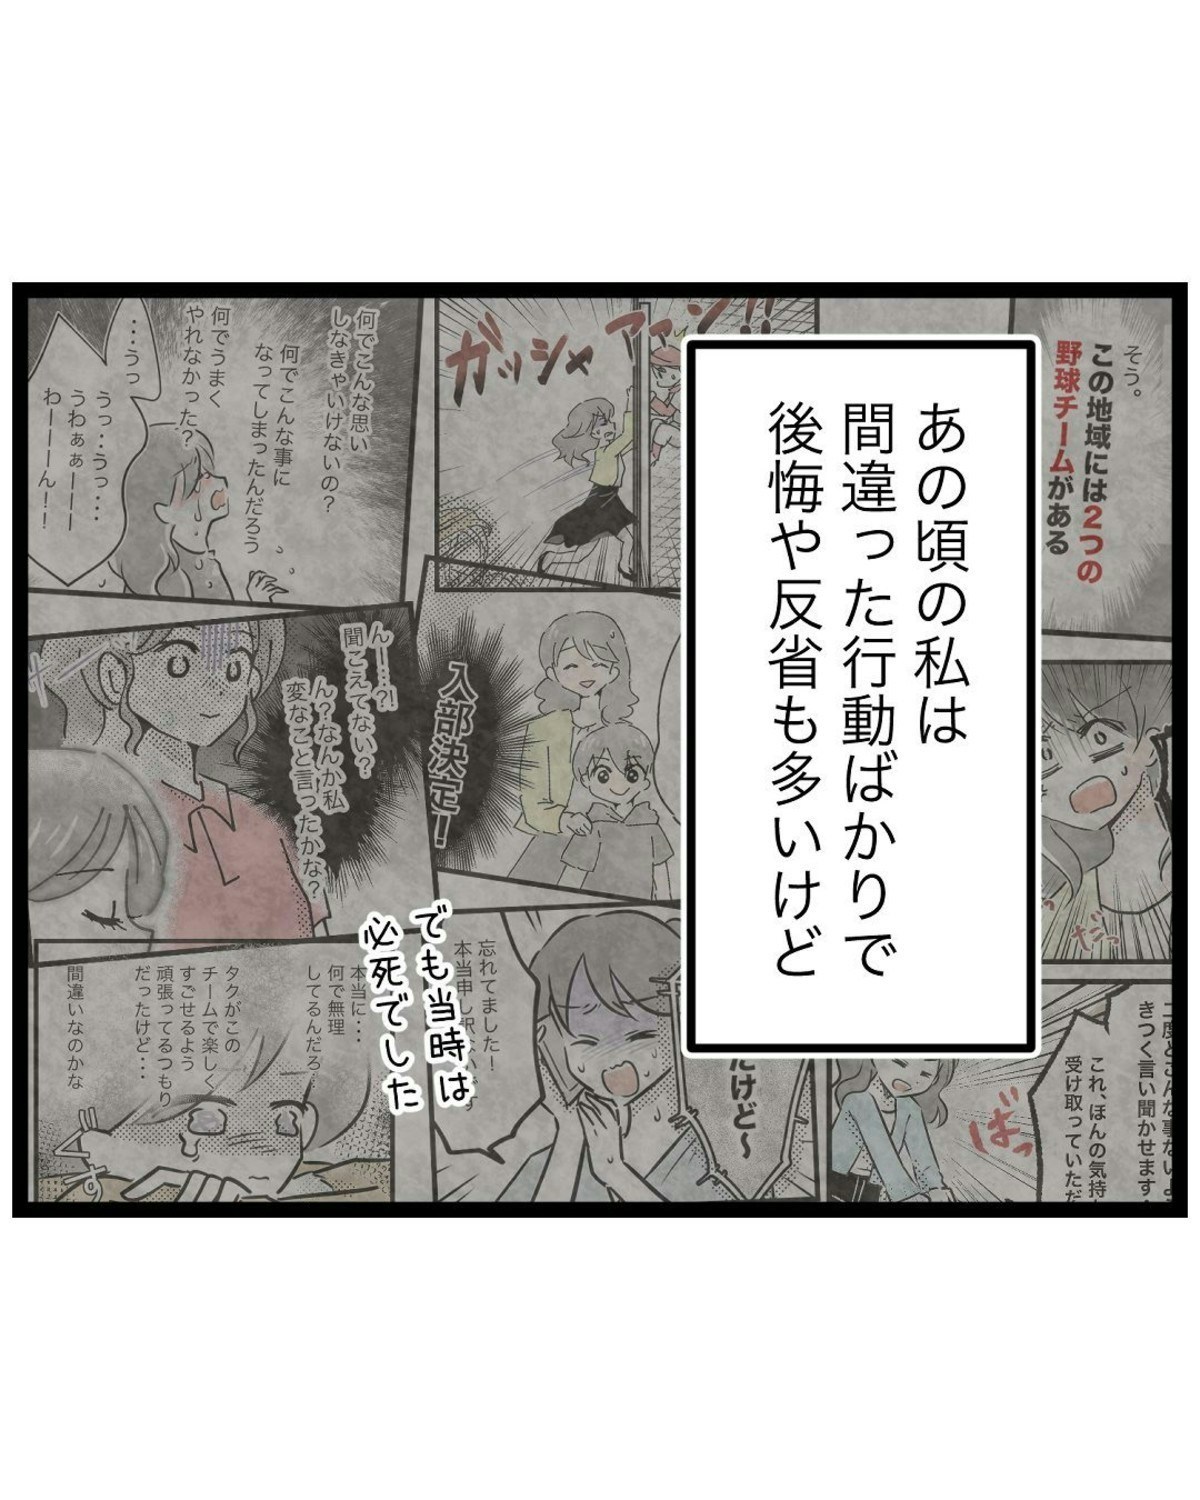 そう。
この地域には2つの
野球チームがある
あの頃の私は
間違った行動ばかりで
後悔や反省も多いけど
ガッシャアアーン!!
何でこんな思い
しなきゃいけないの?
何でこんな事に
なってしまったんだろう
何でうまく
やれなかった?
…うっ
うっ…うっ…
うわぁぁーーー
わーーーん!!
入部決定!
ん…?!
聞こえてない?
ん?なんか私
変なこと言ったかな?
だっ
二度とこんな事ないよ
きつく言い聞かせます
これ、ほんの気持
受け取っていただ
ばっ
だけど〜
忘れてました!
本当申し訳
でも当時は
必死でした
本当に…
何で無理
してるんだろ…
タクがこの
チームで楽しく
すごせるよう
頑張ってるつもり
だったけど…
間違いなのかな
ぐすっ